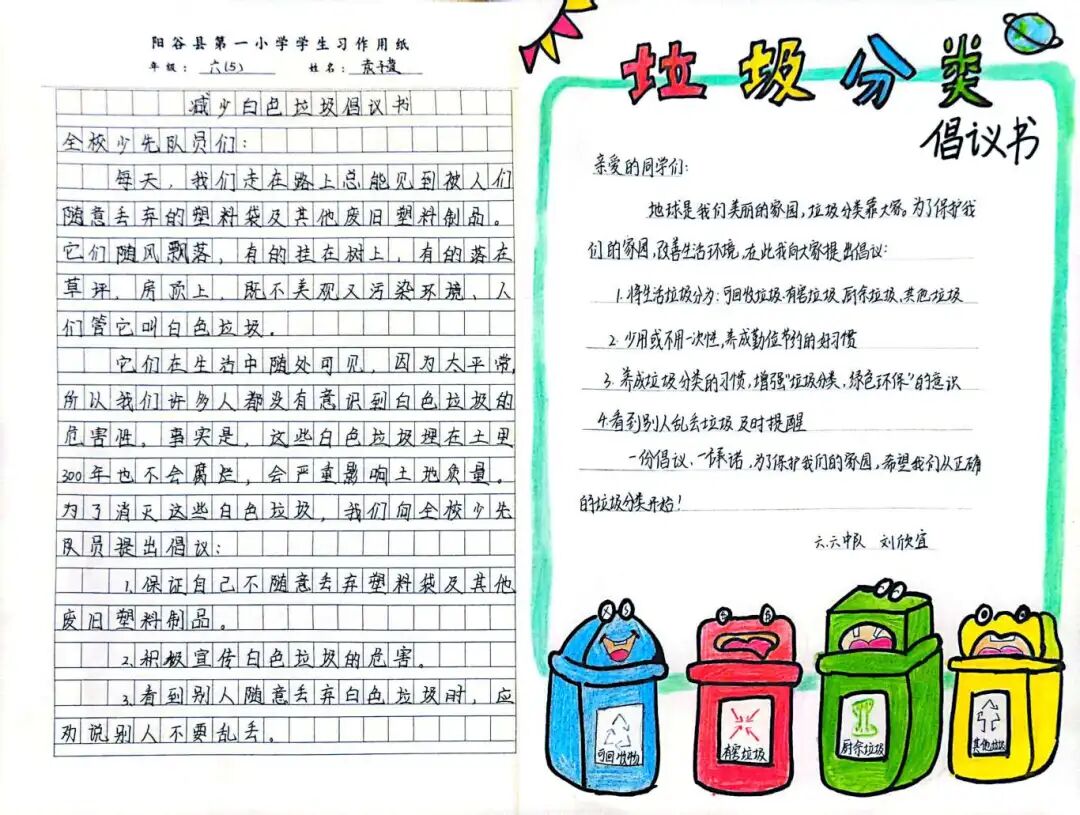 阳谷县第一小学学生习作用纸
年级：六(5) 姓名：
减少白色垃圾倡议书
全校少先队员们：
每天，我们走在路上总能见到被人们
随意丢弃的塑料袋及其他废旧塑料制品。
它们随风飘落，有的挂在树上，有的落在
草坪、房顶上，既不美观又污染环境、人
们管它叫白色垃圾。
它们在生活中随处可见，因为太平常，
所以我们许多人都没有意识到白色垃圾的
危害性。事实是，这些白色垃圾埋在土里
300年也不会腐烂，会严重影响土地质量。
为了消灭这些白色垃圾，我们向全校少先
队员提出倡议：
1.保证自己不随意丢弃塑料袋及其他
废旧塑料制品。
2.积极宣传白色垃圾的危害。
3.看到别人随意丢弃白色垃圾时，应
劝说别人不要乱丢。
垃圾分类
倡议书
亲爱的同学们：
地球是我们美丽的家园，垃圾分类靠大家。为了保护我
们的家园，改善生活环境，在此我向大家提出倡议：
1.将生活垃圾分为：可回收垃圾.有害垃圾.厨余垃圾.其他垃圾
2.少用或不用一次性，养成勤俭节约的好习惯
3.养成垃圾分类的习惯，增强“垃圾分类，绿色环保”的意识
4.看到别人乱丢垃圾及时提醒
一份倡议、一份承诺，为了保护我们的家园，希望我们从正确
的垃圾分类开始！
六.六中队 刘欣宜
可回收物
有害垃圾
厨余垃圾
其他垃圾